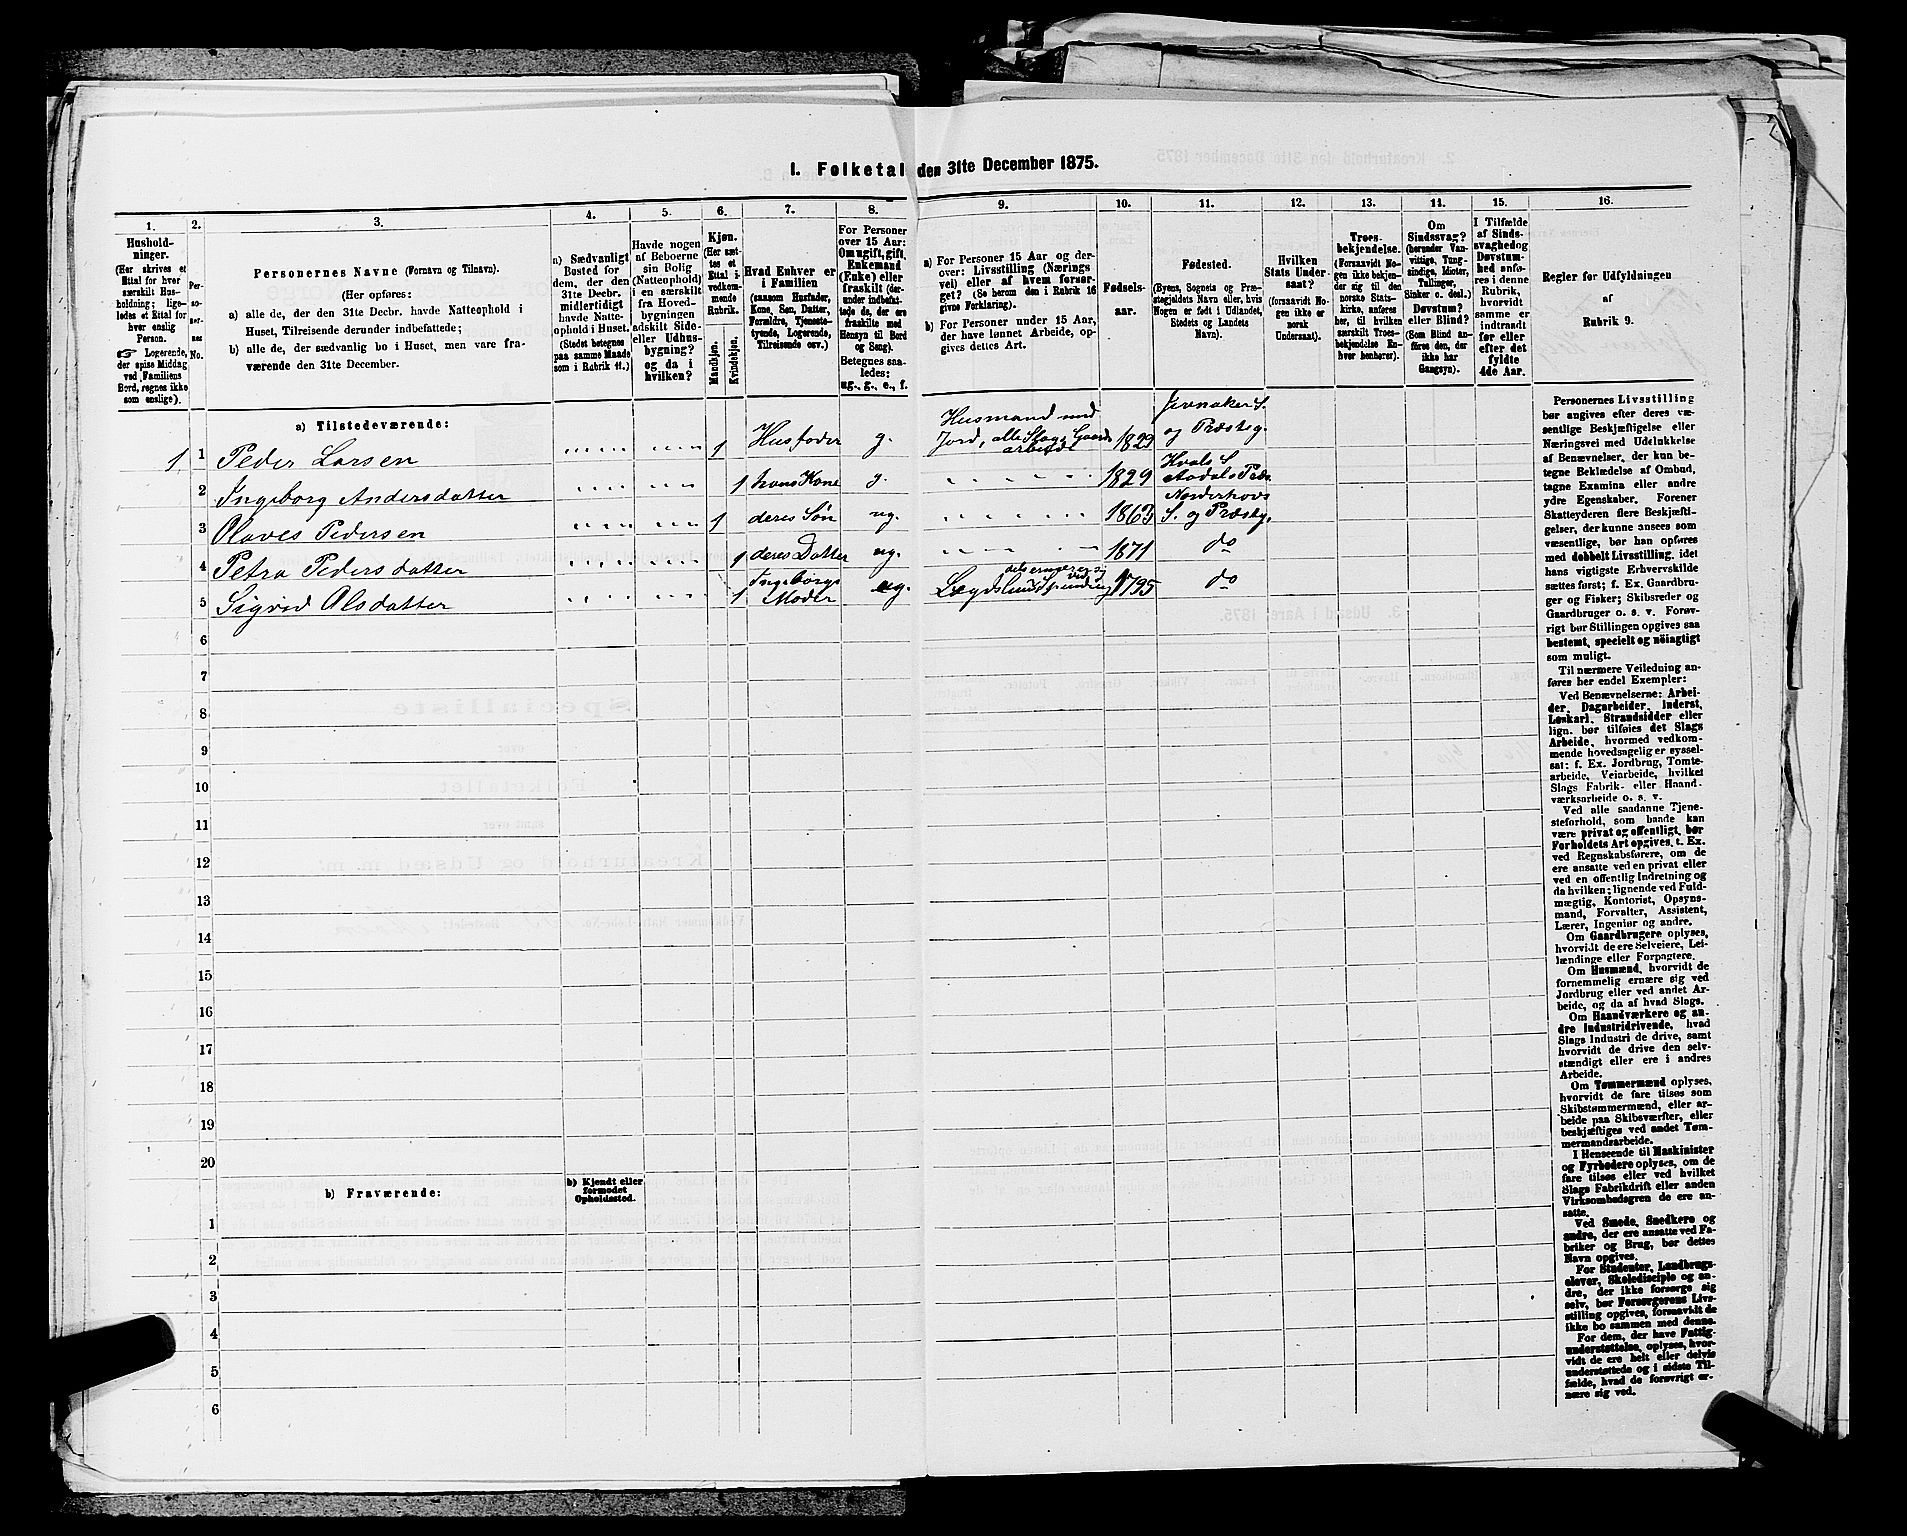 1. Folketal den 31te December 1875.
1. 2. 3. 4. 5. 6. 7. 8. 9. 10. 11. 12. 13. 14. 15. 16.
Hushold-
ninger.
(Her skrives et
Ettal for hver
særskilt Hus-
holdning; lige-
ledes et Ettal for
hver enslig
Person.
☞ Logerende,
der spise Middag
ved Familiens
Bord, regnes ikke
som enslige).
Per-
so-
ner-
nes
No.
Personernes Navne (Fornavn og Tilnavn).
(Her opføres:
a) alle de, der den 31te Decbr. havde Natteophold i
Huset, Tilreisende derunder indbefattede;
b) alle de, der sædvanlig bo i Huset, men vare fra-
værende den 31te December.
a) Sædvanligt
Bosted for
dem, der den
31te Decbr.
midlertidigt
havde Natte-
ophold i Huset.
(Stedet betegnes
paa samme Maade
som i Rubrik 11.)
Havde nogen
af Beboerne
sin Bolig
(Natteophold)
i en særskilt
fra Hoved-
bygningen
adskilt Side-
eller Udhus-
bygning?
og da i
hvilken?
Kjøn.
(Her sæt-
tes et
Ettal i
vedkom-
mende
Rubrik.
Mandkjøn.
Kvindekjøn.
Hvad Enhver er
i Familien
(saasom Husfader,
Kone, Søn, Datter,
Forældre, Tjeneste-
tyende, Logerende,
Tilreisende osv.)
For Personer
over 15 Aar:
Om ugift, gift,
Enkemand
(Enke) eller
fraskilt (der-
under indbefat-
tede de, der ere
fraskilte med
Hensyn til Bord
og Seng).
Betegnes saa-
ledes:
ug., g., e., f.
a) For Personer 15 Aar og der-
over: Livsstilling (Nærings
vei) eller af hvem forsør-
get? (Se herom den i Rubrik 16
givne Forklaring).
b) For Personer under 15 Aar,
der have lønnet Arbeide, op-
gives dettes Art.
Fødsels-
aar.
Fødested.
(Byens, Sognets og Præ-
stegjeldets Navn eller, hvis
Nogen er født i Udlandet,
Stedets og Landets
Navn).
Hvilken
Stats Under-
saat?
(forsaavidt No-
gen ikke er
norsk
Undersaat).
Troes-
bekjendelse.
(Forsaavidt No-
gen ikke bekjen-
der sig til den
norske Stats-
kirke, anføres
her, til hvilken
særskilt Troes-
bekjendelse En-
hver henhører).
Om
Sindssvag?
(herunder Van-
vittige, Tung-
sindige, Idioter,
Tullinger,
Sinker o. desl.)
Døvstum?
eller Blind?
(Som Blind an-
føres den, der
ikke har
Gangsyn).
I Tilfælde
af Sinds-
svaghed og
Døvstum-
hed anfø-
res i denne
Rubrik,
hvorvidt
samme er
indtraadt
før eller
efter det
fyldte
4de Aar.
Regler for Udfyldningen
af
Rubrik 9.
a) Tilstedeværende:
1 1 Peder Larsen 1 Husfader g. Husmand med Jord, alle Slags Gaards arbeide 1829 Jevnaker S. og Præsteg.
2 Ingeborg Andersdatter 1 hans Kone g. 1829 Hvals S. Aadals Præs.
3 Olaves Pedersen 1 deres Søn ug. 1863 Norderhovs S. og Præsteg.
4 Petra Pedersdatter 1 deres Datter ug. 1871 do
5 Sigrid Olsdatter 1 Ingeborgs Moder ug. 1795 do
6
7
8
9
10
11
12
13
14
15
16
17
18
19
20
b) Fraværende:
b) Kjendt eller
formodet
Opholdssted.
1
2
3
4
5
6
Personernes Livsstilling
bør angives efter deres væ-
sentlige Beskjæftigelse eller
Næringsvei med Udelukkelse
af Benævnelser, der kun be-
tegne Beklædelse af Ombud,
tagne Examina eller andre
ydre Egenskaber. Forener
Skatteyderen flere Beskjæfti-
gelser, der kunne ansees som
væsentlige, bør han opføres
med dobbelt Livsstilling, idet
hans vigtigste Erhvervskilde
sættes først; f. Ex. Gaardbru-
ger og Fisker; Skibsreder og
Gaardbruger o. s. v. Forøv-
rigt bør Stillingen opgives saa
bestemt, specielt og nöiagtigt
som muligt.
Til nærmere Veiledning an-
føres her endel Exempler:
Ved Benævnelserne: Arbei-
der, Dagarbeider, Inderst,
Løskarl, Strandsidder eller
lign. bør tilføies det Slags
Arbeide, hvormed vedkom-
mende hovedsagelig er syssel-
sat: f. Ex. Jordbrug, Tomte-
arbeide, Veiarbeide, hvilket
Slags Fabrik- eller Haand-
værksarbeide o. s. v.
Ved alle saadanne Tjene-
steforhold, som baade kan
være privat og offentligt, bør
Forholdets Art opgives, t. Ex.
ved Regnskabsførere, om de
ere ansatte ved en privat eller
ved en offentlig Indretning og
da hvilken; lignende ved Fuld-
mægtig, Kontorist, Opsyns-
mand, Forvalter, Assistent,
Lærer, Ingeniør og andre.
Om Gaardbrugere oplyses,
hvorvidt de ere Selveiere, Lei-
lændinge eller Forpagtere.
Om Husmænd, hvorvidt de
fornemmelig ernære sig ved
Jordbrug eller ved andet Ar-
beide, og da af hvad Slags.
Om Haandværkere og an-
dre Industridrivende, hvad
Slags Industri de drive, samt
hvorvidt de drive den selv-
stændigt eller ere i andres
Arbeide.
Om Tømmermænd oplyses,
hvorvidt de fare tilsøs som
Skibstømmermænd, eller ar-
beide paa Skibsværfter, eller
beskjæftiges ved andet Tøm-
mermandsarbeide.
I Henseende til Maskinister
og Fyrbødere oplyses, om de
fare tilsøs eller ved hvilket
Slags Fabrikdrift eller anden
Virksomhedsgren de ere an-
satte.
Ved Smede, Snedkere og
andre, der ere ansatte ved Fa-
briker og Brug, bør dettes
Navn opgives.
For Studenter, Landbrugs-
elever, Skoledisciple og an-
dre, der ikke forsørge sig
selv, bør Forsørgerens Livs-
stilling opgives, forsaavidt de
ikke bo sammen med denne.
For dem, der have Fattig-
understøttelse, oplyses, hvor-
vidt de ere helt eller delvis
understøttede og i sidste Til-
fælde, hvad de forøvrigt er-
nære sig ved.